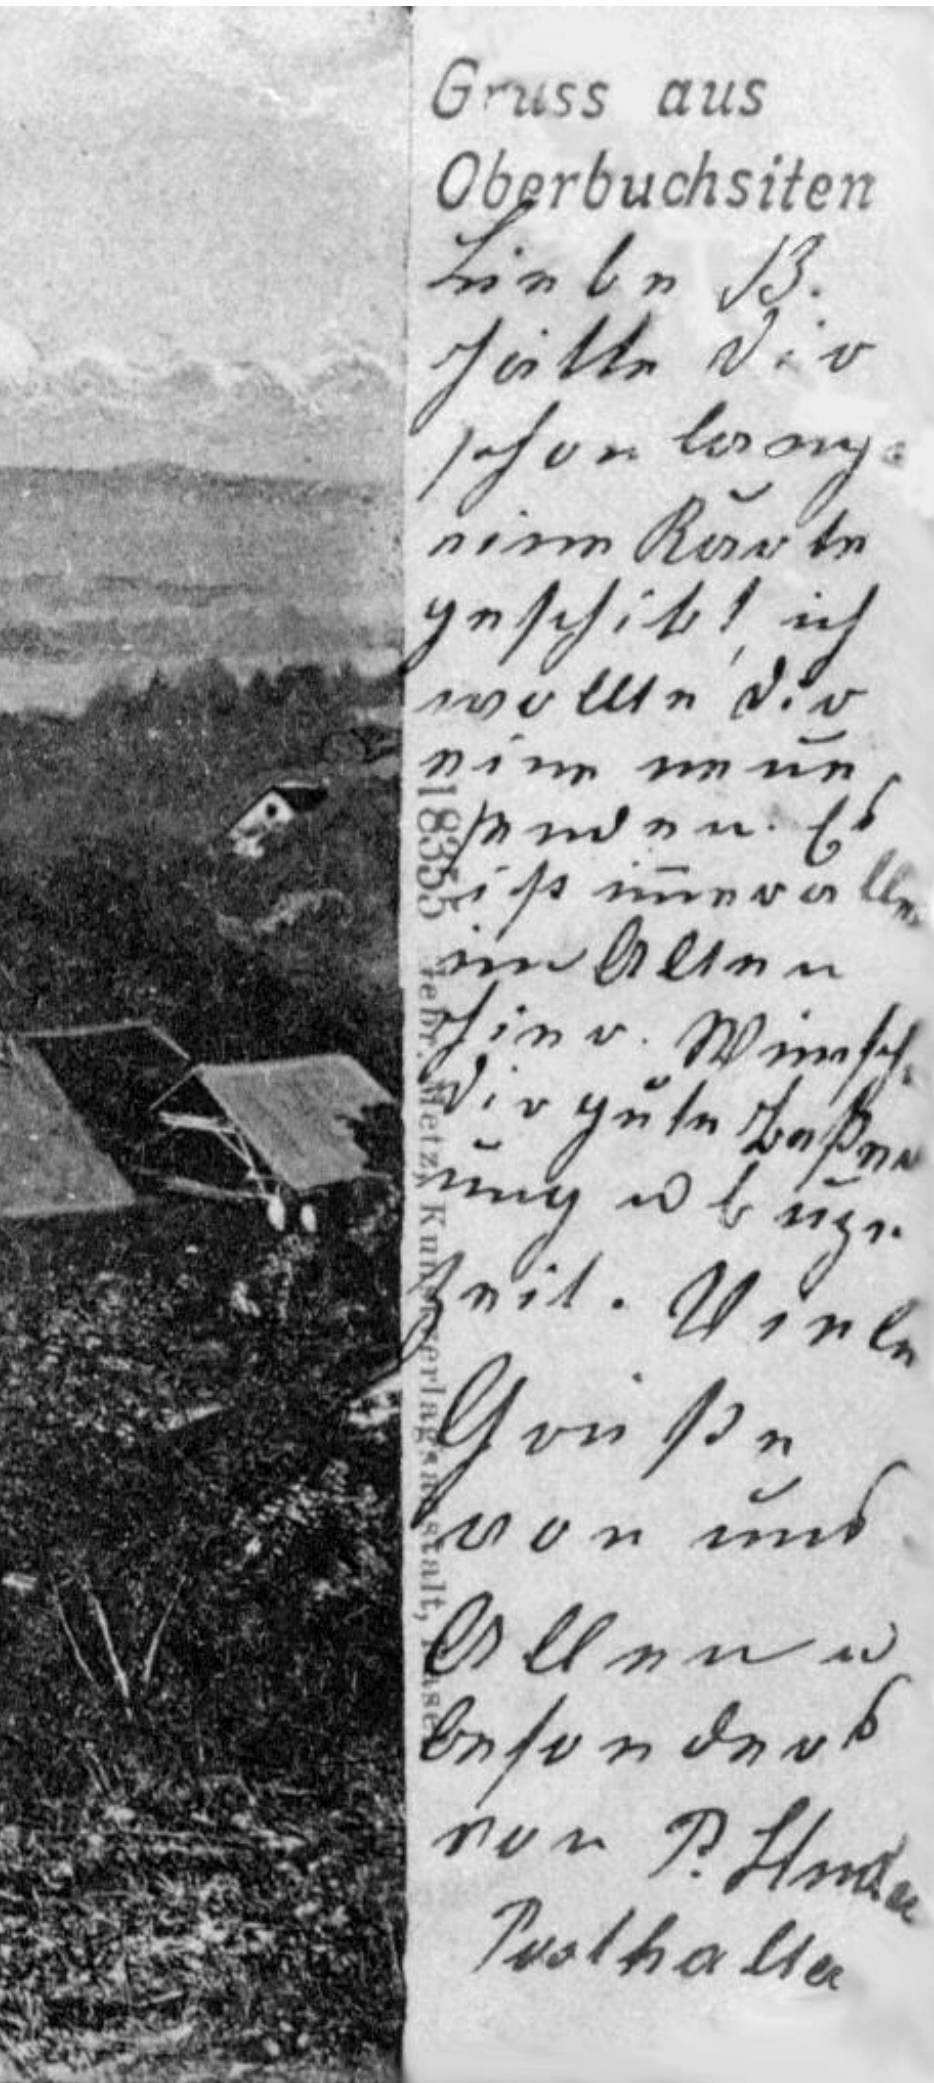 Gruss aus
Oberbuchsiten
Liebe B.
hätte Dir
schon lang
eine Karte
geschikt, ich
wollte Dir
eine neue
senden. Es
ist im̅er alles
im Alten
hier. Wünsch
Dir gute Beßer
ung u
Zeit. Viele
Grüße
von uns
Allen u
besonders
von P. Studer
Posthalter
18355 Gebr. Metz, Kunstverlagsanstalt, Basel